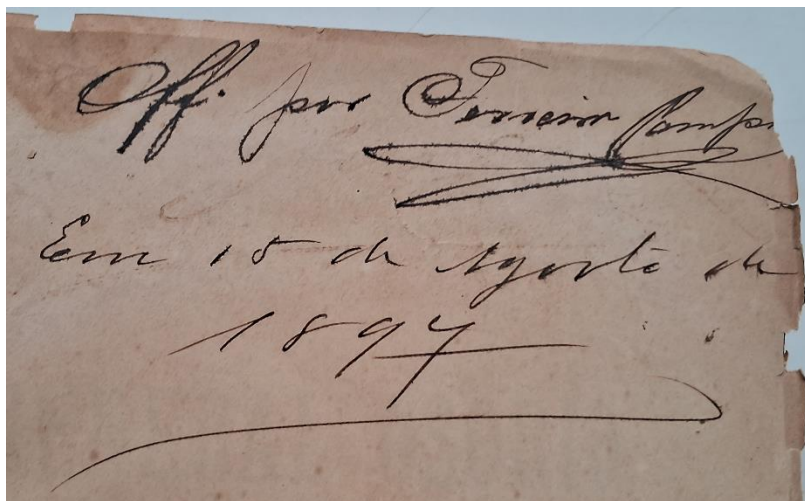 Off. por Ferreira
Em 15 de Agosto de
1897